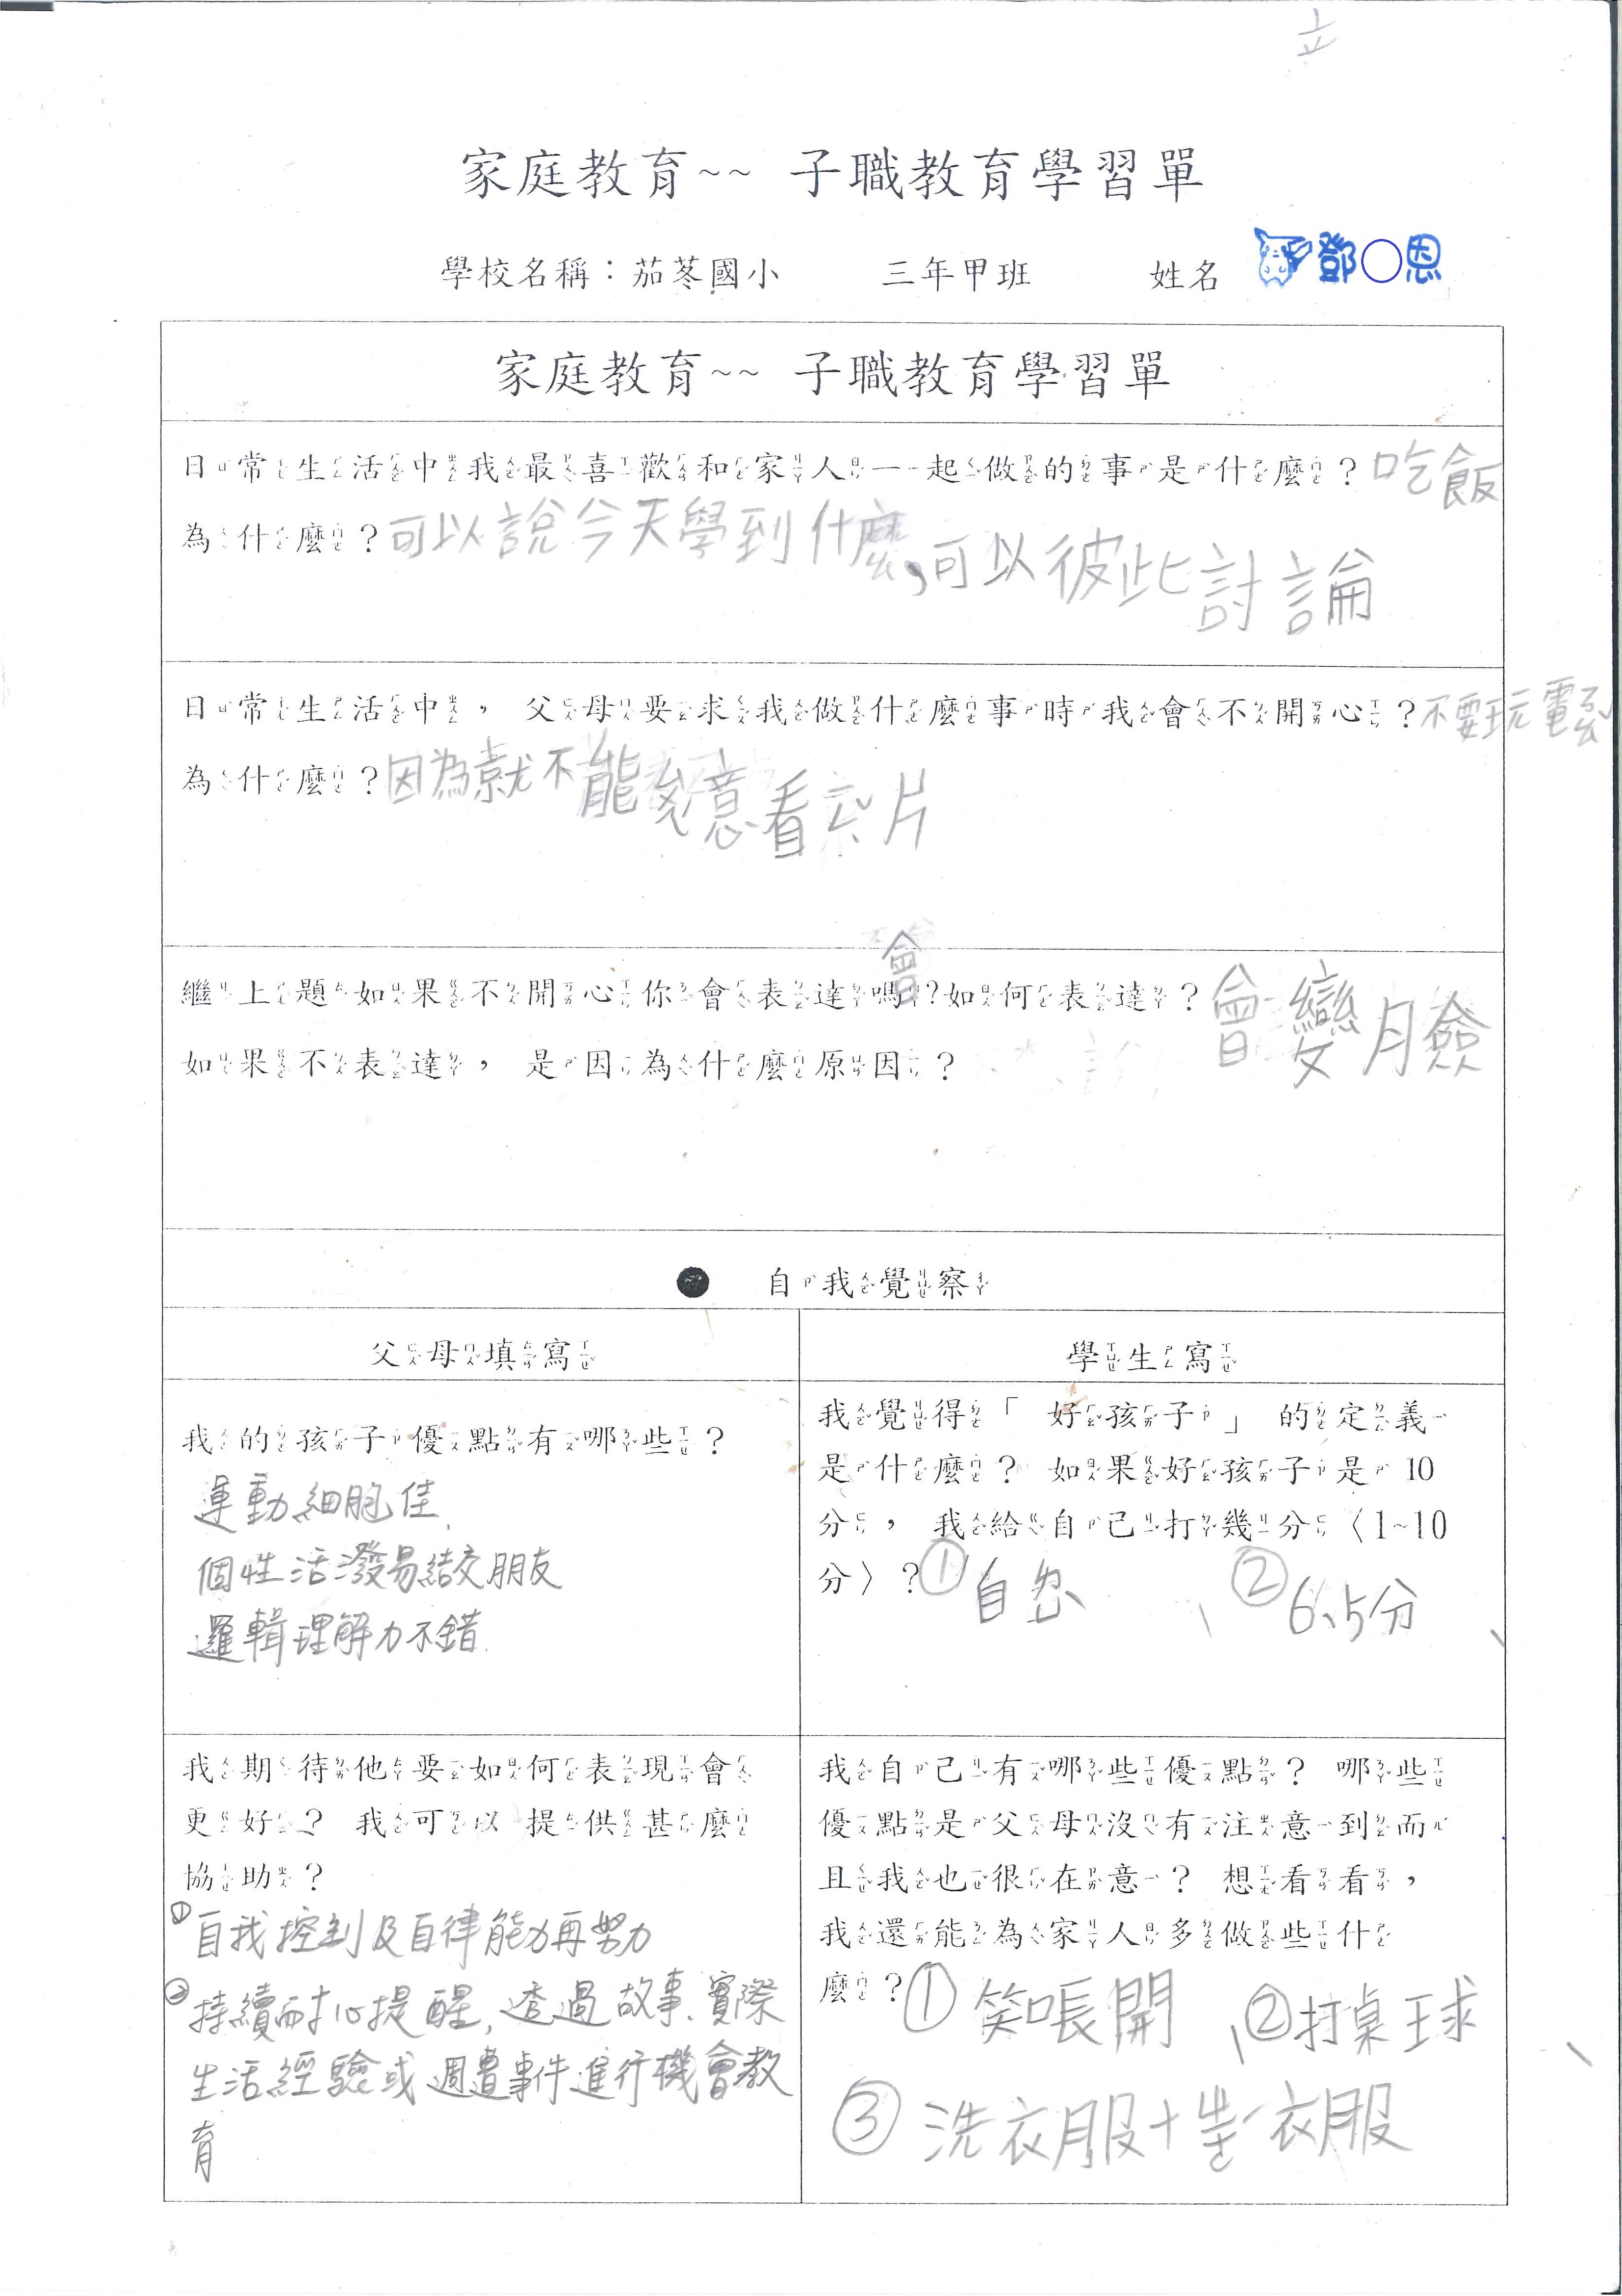 立
家庭教育~~ 子職教育學習單
學校名稱：茄苳國小 三年甲班 姓名 鄧○恩
家庭教育~~ 子職教育學習單
日常生活中我最喜歡和家人一起做的事是什麼？吃飯
為什麼？可以說今天學到什麼，可以彼此討論
日常生活中，父母要求我做什麼事時我會不開心？不要玩電ㄋㄠ
為什麼？因為就不能 意看 片
會
繼上題如果不開心你會表達嗎？如何表達？會變臉
如果不表達，是因為什麼原因？
● 自我覺察
父母填寫
我的孩子優點有哪些？
運動細胞佳、
個性活潑易結交朋友
邏輯理解力不錯
我期待他要如何表現會
更好？ 我可以 提供甚麼
協助？
①自我控制及自律能力再努力
②持續耐心提醒，透過故事、實際
生活經驗或週遭事件進行機會教
育
學生寫
我覺得「 好孩子 」 的定義
是什麼？ 如果好孩子是 10
分， 我給自己打幾分〈1~10
分〉？① 自 ② 6、5分
我自己有哪些優點？ 哪些
優點是父母沒有注意到而
且我也很在意？ 想看看，
我還能為家人多做些什
麼？① 笑 開、②打桌球
③ 洗衣服+ 衣服